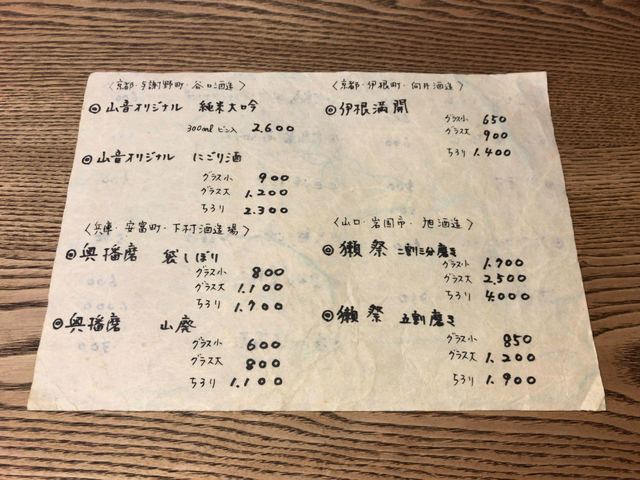 〈京都・与謝野町・谷口酒造〉
◎山音オリジナル 純米大吟
300ml ビン入 2.600
◎山音オリジナル にごり酒
グラス小 900
グラス大 1.200
ちろり 2.300
〈兵庫・安富町・下村酒造場〉
◎奥播磨 袋しぼり
グラス小 800
グラス大 1.100
ちろり 1.900
◎奥播磨 山廃
グラス小 600
グラス大 800
ちろり 1.100
〈京都・伊根町・向井酒造〉
◎伊根満開
グラス小 650
グラス大 900
ちろり 1.400
〈山口・岩国市・旭酒造〉
◎獺祭 二割三分磨き
グラス小 1.900
グラス大 2.500
ちろり 4.000
◎獺祭 五割磨き
グラス小 850
グラス大 1.200
ちろり 1.900